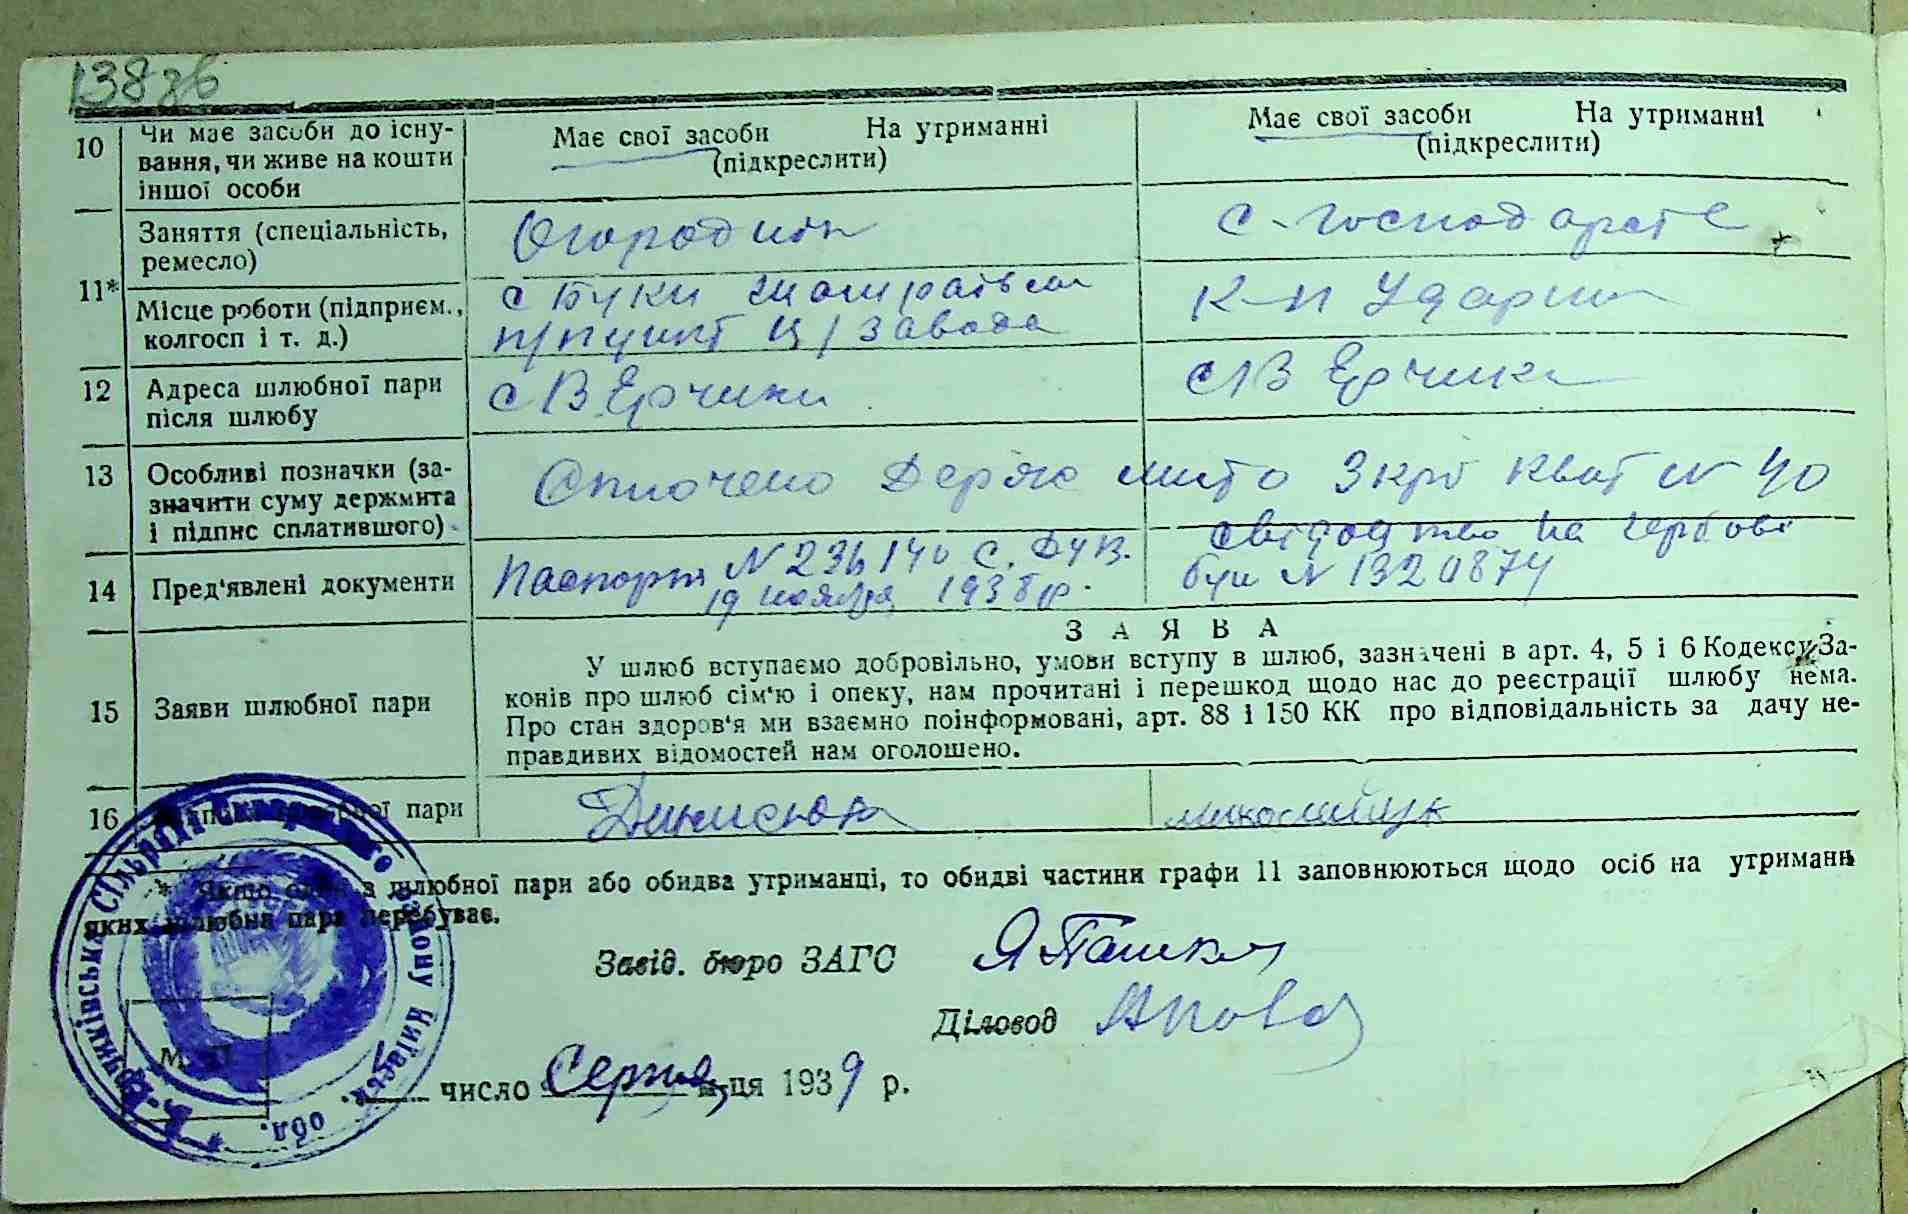 138зв
10 Чи має засоби до існу-
вання, чи живе на кошти
іншої особи
Має свої засоби На утриманні
(підкреслити)
Має свої засоби На утриманні
(підкреслити)
11*
Заняття (спеціальність,
ремесло)
Огородник
С-господарст
Місце роботи (підприєм.,
колгосп і т. д.)
с Буки
п/пункт ц/завода
К-п Ударник
12 Адреса шлюбної пари
після шлюбу
с В Єрчики
с В Єрчики
13 Особливі позначки (за-
значити суму держмита
і підпис сплатившого)
Сплочено Держ мито 3 крб квит № 40
14 Пред'явлені документи
Паспорт № 236140 С.
19 ноября 1938 р.
свідоцтво на гербові
бум № 1320874
ЗАЯВА
15 Заяви шлюбної пари
У шлюб вступаємо добровільно, умови вступу в шлюб, зазначені в арт. 4, 5 і 6 Кодексу За-
конів про шлюб сім'ю і опеку, нам прочитані і перешкод щодо нас до реєстрації шлюбу нема.
Про стан здоров'я ми взаємно поінформовані, арт. 88 і 150 КК про відповідальність за дачу не-
правдивих відомостей нам оголошено.
16 Підписи шлюбної пари
Динисюк
миколайчук
* Якщо один з шлюбної пари або обидва утриманці, то обидві частини графи 11 заповнюються щодо осіб на утриманні
яких шлюбна пара перебуває.
Завід. бюро ЗАГС Я Пашко
Діловод
М. П.
число Серпня м-ця 1939 р.
В-Єрчиківська Сільрада Сквирського району Київськ. обл.